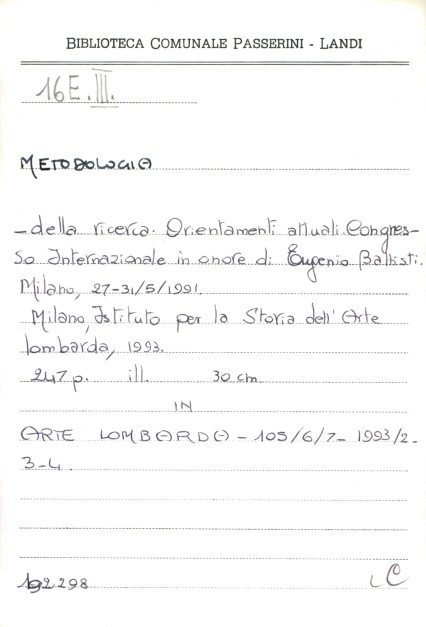 BIBLIOTECA COMUNALE PASSERINI - LANDI
16E.III.
METODOLOGIA
- della ricerca. Orientamenti attuali. Congres-
so Internazionale in onore di Eugenio Battisti.
Milano, 27-31/5/1991.
Milano, Istituto per la Storia dell'Arte
lombarda, 1993.
247 p. ill. 30 cm.
IN
ARTE LOMBARDA - 105/6/7 - 1993/2-
3-4.
192298 LC